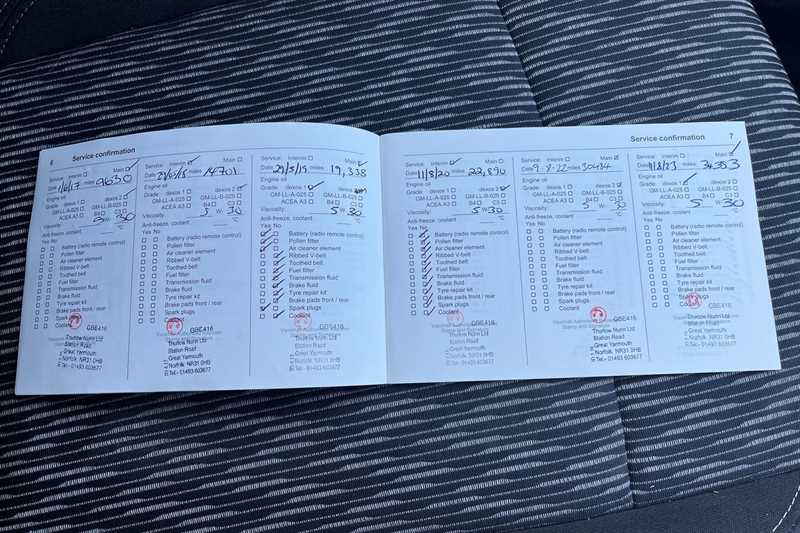 6 Service confirmation
Service: Interim Main
Date 1/6/17 miles 9630
Engine oil
Grade: dexos 1 dexos 2
GM-LL-A-025 GM-LL-B-025
ACEA A3 B4 C3
Viscosity: 5 W 30
Anti-freeze, coolant °C
Yes No
Battery (radio remote control)
Pollen filter
Air cleaner element
Ribbed V-belt
Toothed belt
Fuel filter
Transmission fluid
Brake fluid
Tyre repair kit
Brake pads front / rear
Spark plugs
Coolant
GBE416
Thurlow Nunn Ltd
Station Road
Great Yarmouth
Norfolk. NR31 0HB
Tel:- 01493 603677
Service: Interim Main
Date miles 14701
Engine oil
Grade: dexos 1 dexos 2
GM-LL-A-025 GM-LL-B-025
ACEA A3 B4 C3
Viscosity: 5 W-30
Anti-freeze, coolant °C
Yes No
Battery (radio remote control)
Pollen filter
Air cleaner element
Ribbed V-belt
Toothed belt
Fuel filter
Transmission fluid
Brake fluid
Tyre repair kit
Brake pads front / rear
Spark plugs
Coolant
GBE416
Thurlow Nunn Ltd
Station Road
Great Yarmouth
Norfolk. NR31 0HB
Tel:- 01493 603677
Service: Interim Main
Date 29/5/19 miles 19,338
Engine oil
Grade: dexos 1 dexos 2
GM-LL-A-025 GM-LL-B-025
ACEA A3 B4 C3
Viscosity: 5 W 30
Anti-freeze, coolant °C
Yes No
Battery (radio remote control)
Pollen filter
Air cleaner element
Ribbed V-belt
Toothed belt
Fuel filter
Transmission fluid
Brake fluid
Tyre repair kit
Brake pads front / rear
Spark plugs
Coolant
GBE416
Thurlow Nunn Ltd
Station Road
Great Yarmouth
Norfolk. NR31 0HB
Tel:- 01493 603677
Service confirmation 7
Service: Interim Main
Date 11/8/20 miles 22,890
Engine oil
Grade: dexos 1 dexos 2
GM-LL-A-025 GM-LL-B-025
ACEA A3 B4 C3
Viscosity: 5 W 30
Anti-freeze, coolant °C
Yes No
Battery (radio remote control)
Pollen filter
Air cleaner element
Ribbed V-belt
Toothed belt
Fuel filter
Transmission fluid
Brake fluid
Tyre repair kit
Brake pads front / rear
Spark plugs
Coolant
GBE416
Thurlow Nunn Ltd
Station Road
Great Yarmouth
Norfolk. NR31 0HB
Tel:- 01493 603677
Service: Interim Main
Date 9-8-22 miles 30434
Engine oil
Grade: dexos 1 dexos 2
GM-LL-A-025 GM-LL-B-025
ACEA A3 B4 C3
Viscosity: 5 W 30
Anti-freeze, coolant °C
Yes No
Battery (radio remote control)
Pollen filter
Air cleaner element
Ribbed V-belt
Toothed belt
Fuel filter
Transmission fluid
Brake fluid
Tyre repair kit
Brake pads front / rear
Spark plugs
Coolant
GBE416
Thurlow Nunn Ltd
Station Road
Great Yarmouth
Norfolk. NR31 0HB
Tel:- 01493 603677
Service: Interim Main
Date miles
Engine oil
Grade: dexos 1 dexos 2
GM-LL-A-025 GM-LL-B-025
ACEA A3 B4 C3
Viscosity: 5 W 30
Anti-freeze, coolant °C
Yes No
Battery (radio remote control)
Pollen filter
Air cleaner element
Ribbed V-belt
Toothed belt
Fuel filter
Transmission fluid
Brake fluid
Tyre repair kit
Brake pads front / rear
Spark plugs
Coolant
GBE416
Thurlow Nunn Ltd
Station Road
Great Yarmouth
Norfolk. NR31 0HB
Tel:- 01493 603677